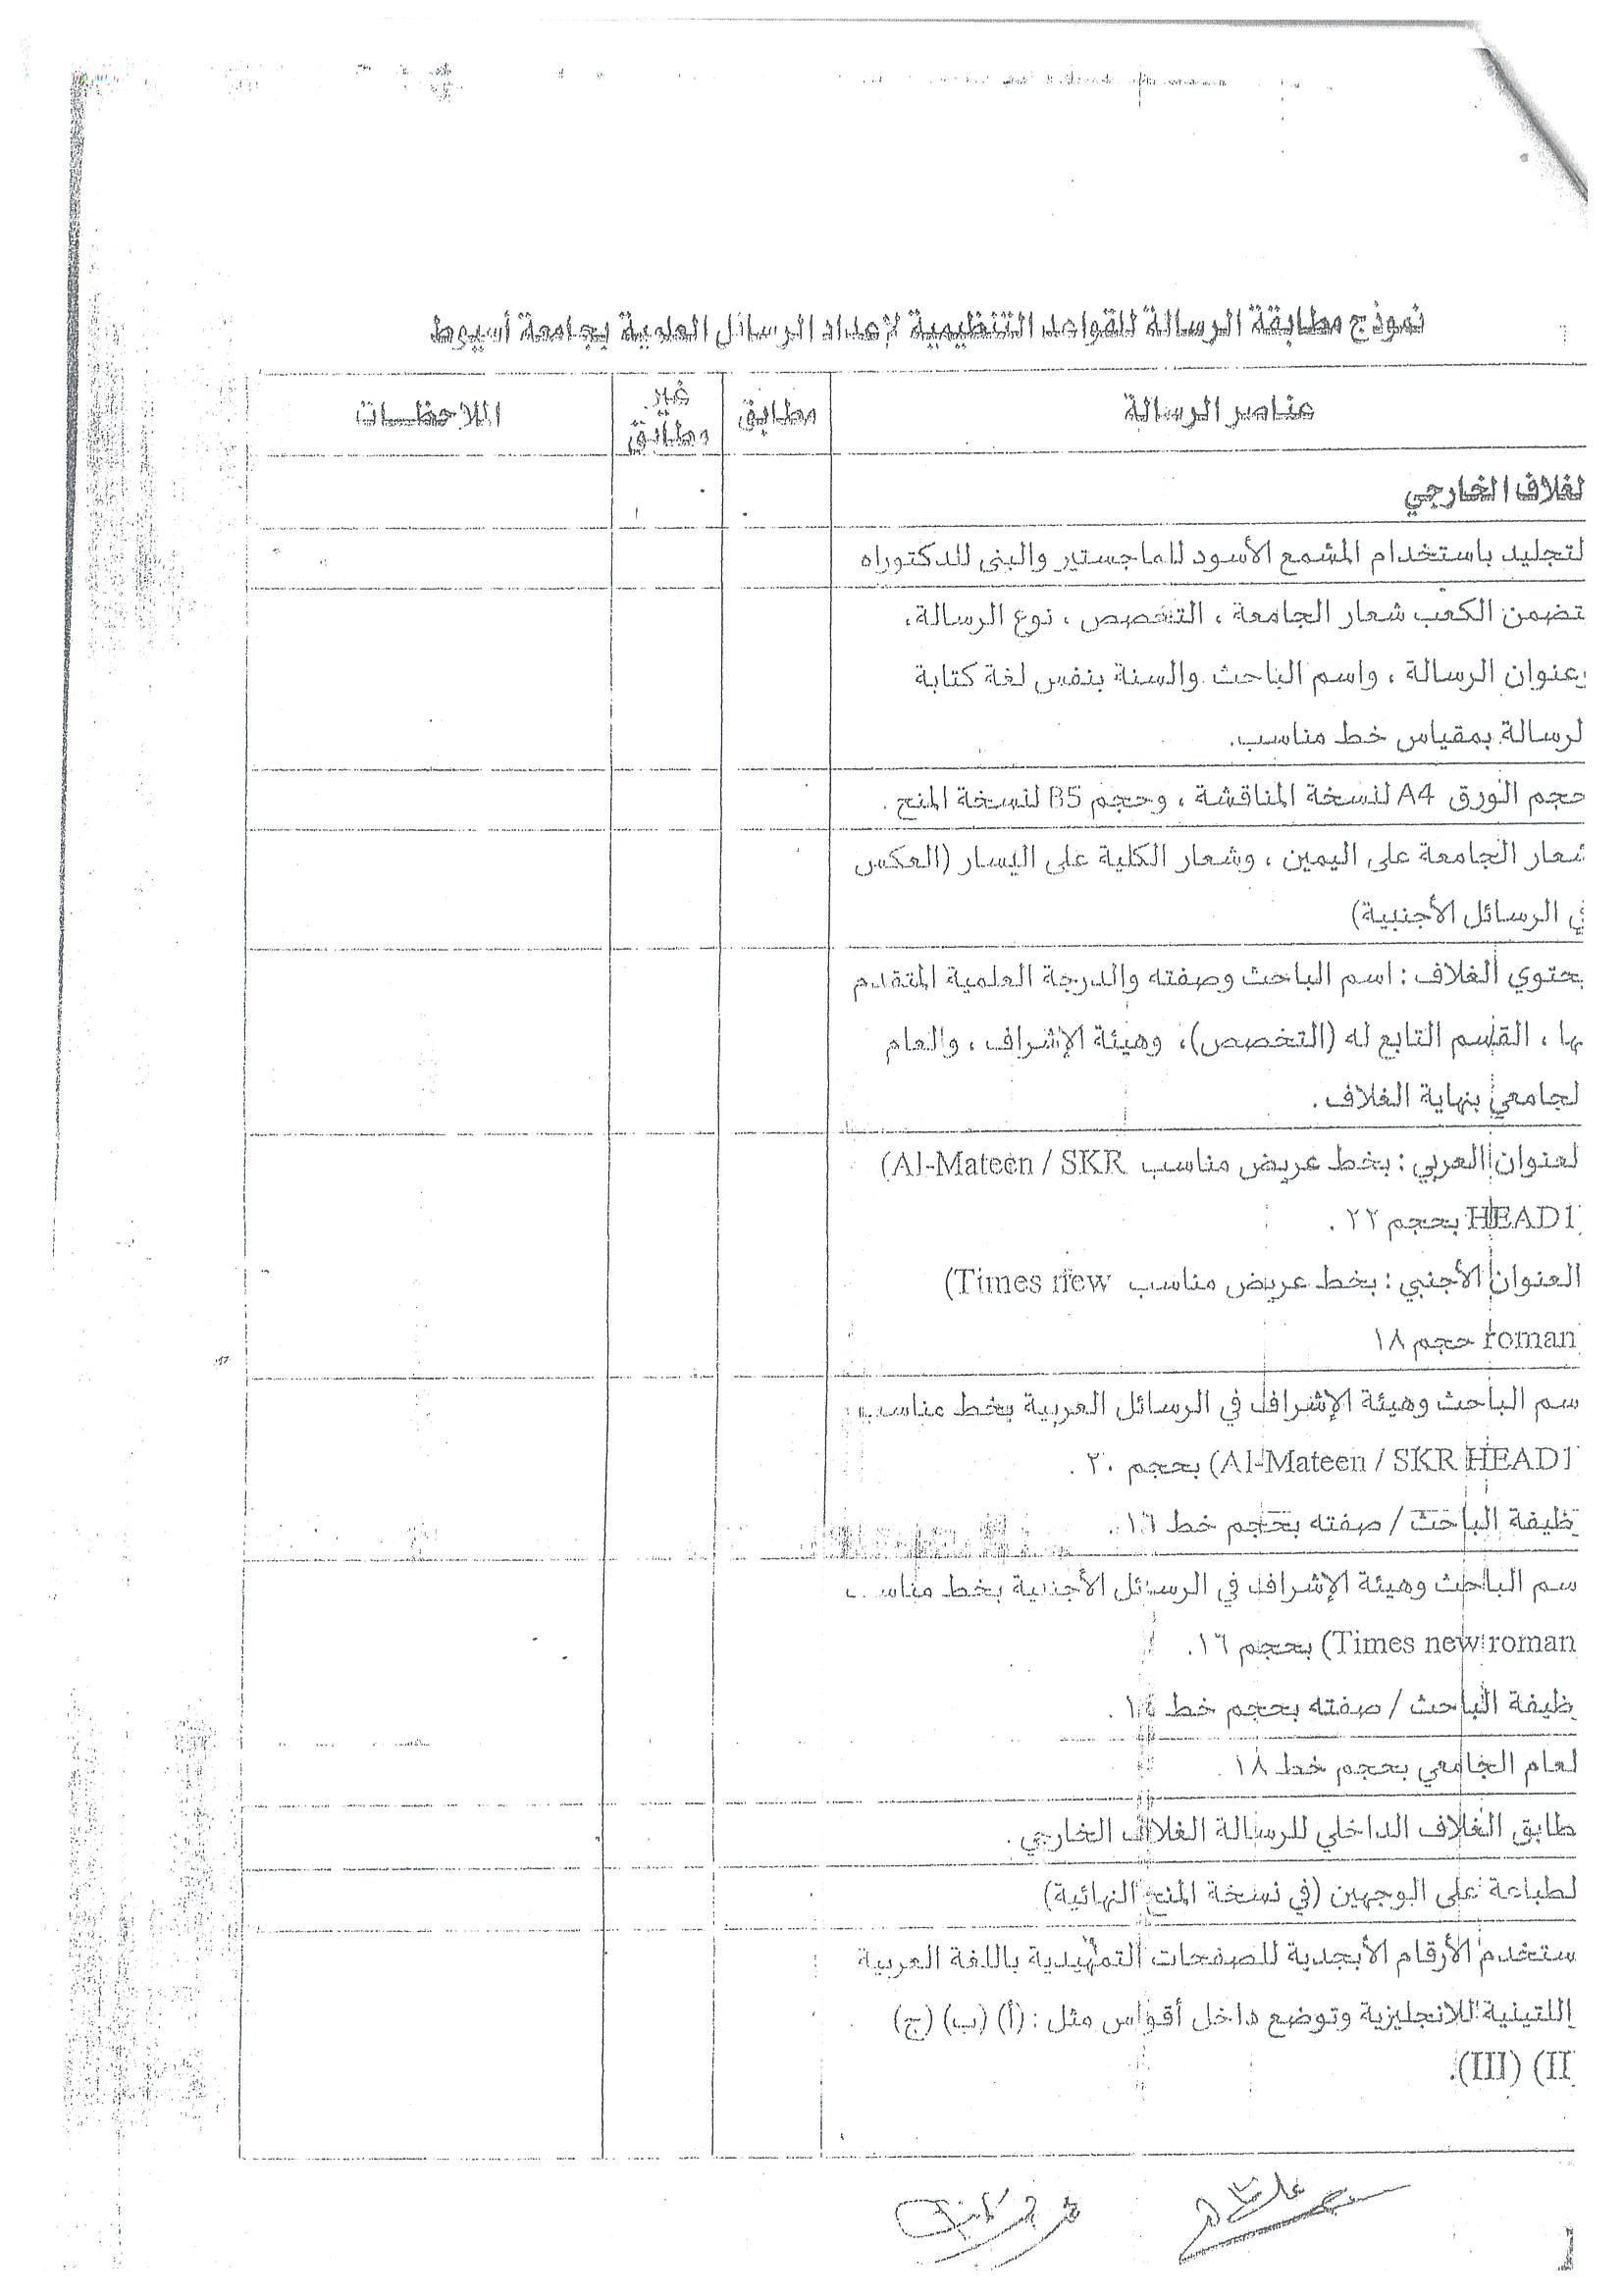 نموذج مطابقة الرسالة للقواعد التنظيمية لإعداد الرسائل العلمية بجامعة أسيوط
عناصر الرسالة	مطابق	غير مطابق	الملاحظات
لغلاف الخارجي
لتجليد باستخدام المشمع الأسود للماجستير والبنى للدكتوراه
تضمن الكعب شعار الجامعة ، التخصص ، نوع الرسالة،
عنوان الرسالة ، واسم الباحث والسنة بنفس لغة كتابة
لرسالة بمقياس خط مناسب.
حجم الورق A4 لنسخة المناقشة ، وحجم B5 لنسخة المنح .
شعار الجامعة على اليمين ، وشعار الكلية على اليسار (العكس
ي الرسائل الأجنبية)
يحتوي الغلاف : اسم الباحث وصفته والدرجة العلمية المتقدم
بها ، القسم التابع له (التخصص)، وهيئة الإشراف ، والعام
لجامعي بنهاية الغلاف .
لعنوان العربي : بخط عريض مناسب (Al-Mateen / SKR
HEAD1 بحجم ٢٢ .
العنوان الأجنبي : بخط عريض مناسب (Times new
roman حجم ١٨
سم الباحث وهيئة الإشراف في الرسائل العربية بخط مناسب
(Al-Mateen / SKR HEAD1 بحجم ٢٠ .
ظيفة الباحث / صفته بحجم خط ١٦ .
سم الباحث وهيئة الإشراف في الرسائل الأجنبية بخط مناسب
(Times new roman بحجم ١٦.
ظيفة الباحث / صفته بحجم خط ١٤ .
لعام الجامعي بحجم خط ١٨ .
طابق الغلاف الداخلي للرسالة الغلاف الخارجي .
لطباعة على الوجهين (في نسخة المنح النهائية)
ستخدم الأرقام الأبجدية للصفحات التمهيدية باللغة العربية
اللتينية للانجليزية وتوضع داخل أقواس مثل : (أ) (ب) (ج)
II) (III).